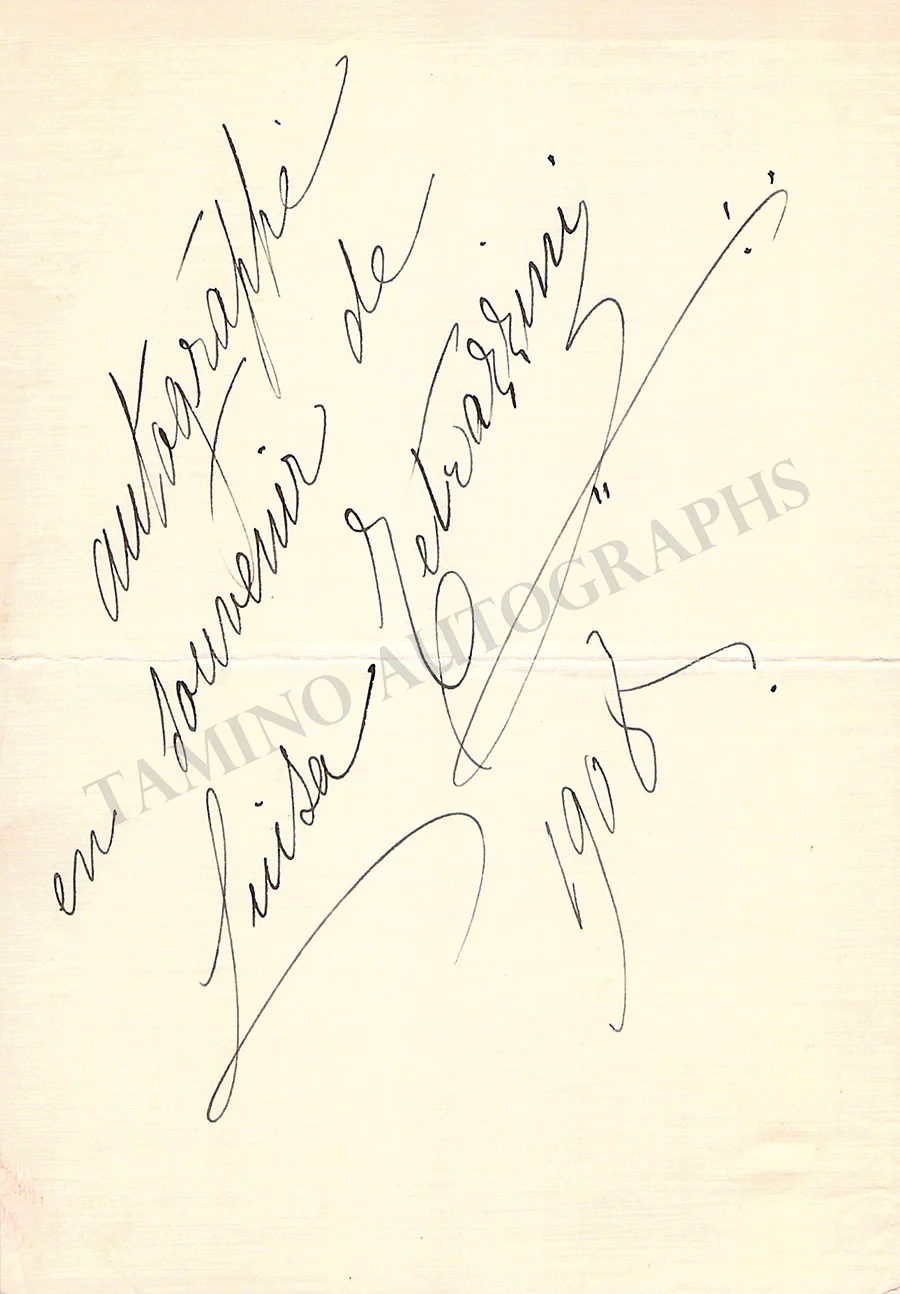 autographe
en souvenir de
Luisa Tetrazzini
1908.
TAMINO AUTOGRAPHS